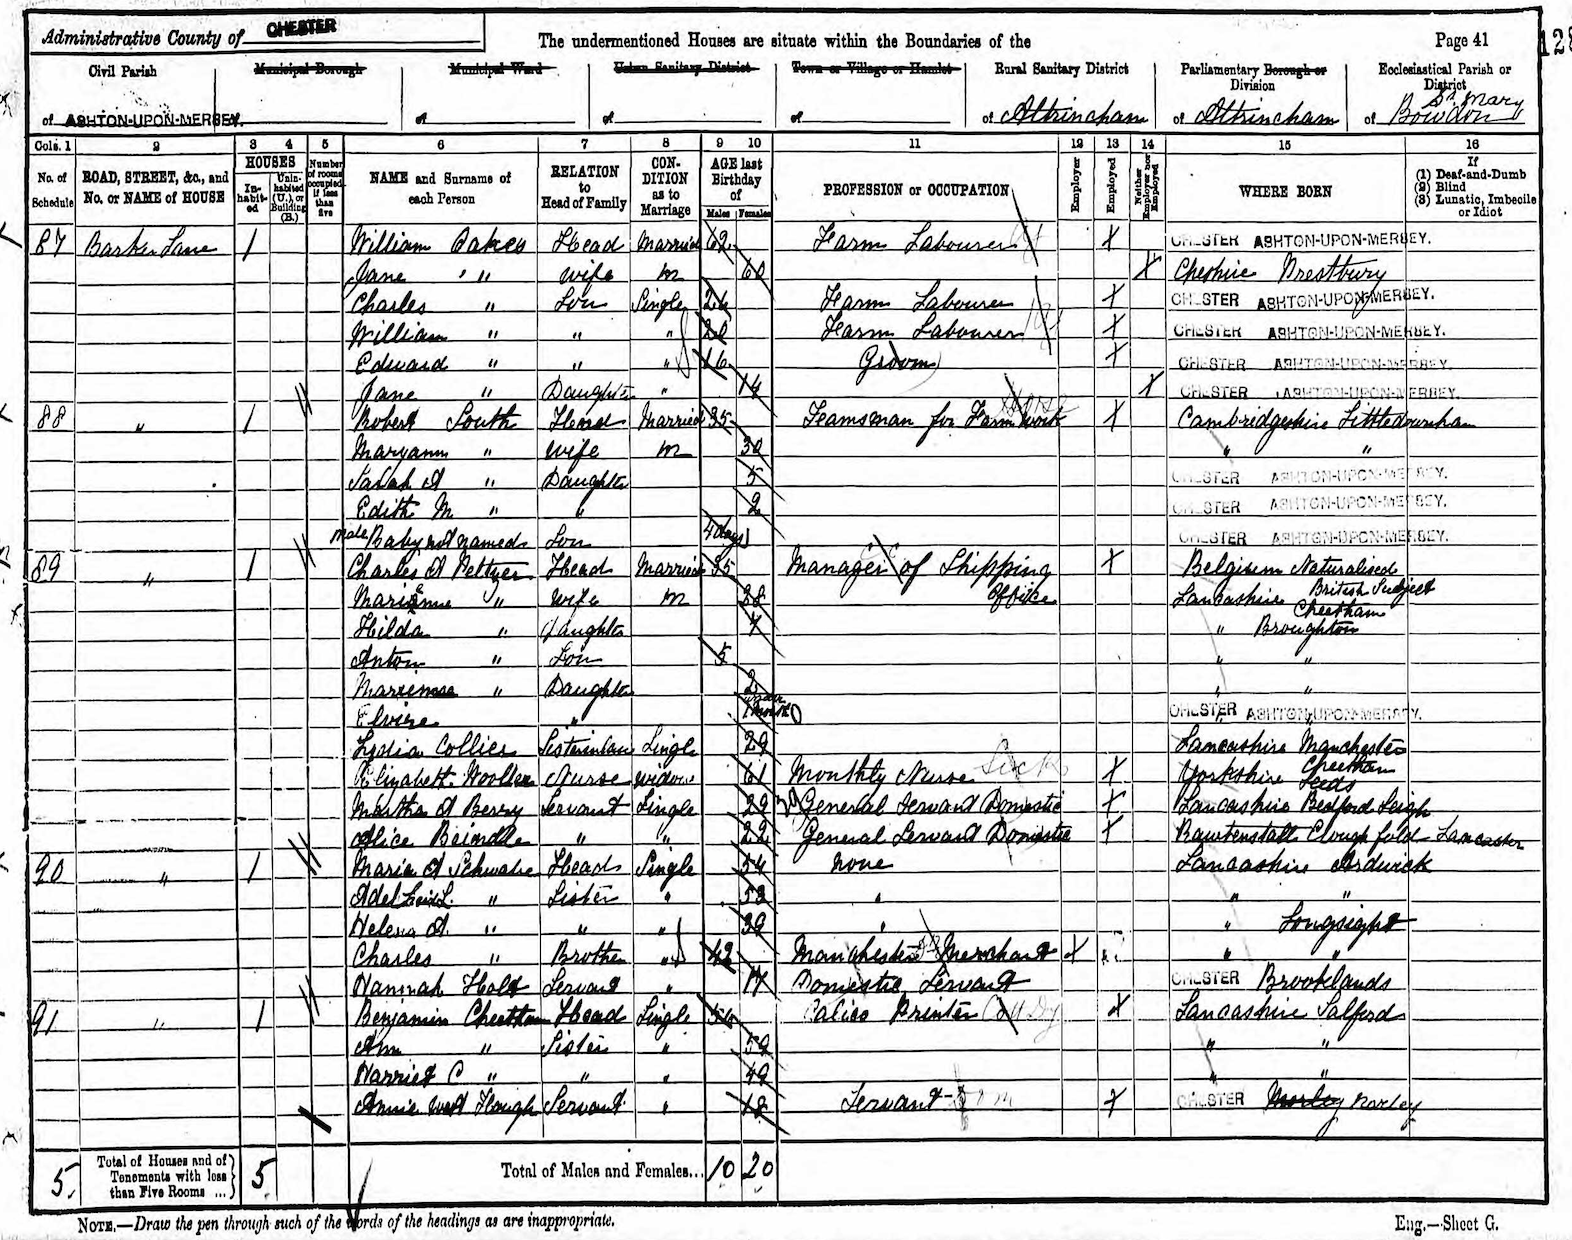 Administrative County of CHESTER
The undermentioned Houses are situate within the Boundaries of the
Page 41
128
Civil Parish
of ASHTON-UPON-MERSEY.
Municipal Borough
Municipal Ward
of
Urban Sanitary District
of
Town or Village or Hamlet
of
Rural Sanitary District
of Altrincham
Parliamentary Borough or Division
of Altrincham
Ecclesiastical Parish or District
of St Mary Bowdon
Cols. 1 2 3 4 5 6 7 8 9 10 11 12 13 14 15 16
No. of Schedule
ROAD, STREET, &c., and No. or NAME of HOUSE
HOUSES
In-habit-ed
Unin-habited (U.), or Building (B.)
Number of rooms occupied if less than five
NAME and Surname of each Person
RELATION to Head of Family
CON-DITION as to Marriage
AGE last Birthday of
Males Females
PROFESSION or OCCUPATION
Employer
Employed
Neither Employer nor Employed
WHERE BORN
If
(1) Deaf-and-Dumb
(2) Blind
(3) Lunatic, Imbecile or Idiot
87 Barker Lane 1 William Oakes Head Married 62 Farm Labourer X CHESTER ASHTON-UPON-MERSEY.
Jane " " Wife M 60 X Cheshire Prestbury
Charles " Son Single 26 Farm Labourer X CHESTER ASHTON-UPON-MERSEY.
William " " " 20 Farm Labourer X CHESTER ASHTON-UPON-MERSEY.
Edward " " " 16 Groom X CHESTER ASHTON-UPON-MERSEY.
Jane " Daughter " 14 X CHESTER ASHTON-UPON-MERSEY.
88 " 1 Robert South Head Married 35 Teamsman for Farm Work X Cambridgeshire Littledownham
Maryann " Wife M 30 " "
Sarah A " Daughter 5 CHESTER ASHTON-UPON-MERSEY.
Edith M " " 2 CHESTER ASHTON-UPON-MERSEY.
Male Baby not named Son 4 days CHESTER ASHTON-UPON-MERSEY.
89 " 1 Charles A Peltzer Head Married 35 Manager of Shipping Office X Belgium Naturalised British Subject
Marianne " Wife M 28 Lancashire Cheetham
Hilda " Daughter 7 " Broughton
Anton " Son 5 " "
" Daughter 2 " "
Elvire " under 1 month CHESTER ASHTON-UPON-MERSEY.
Lydia Collier Sister in law Single 29 Lancashire Manchester Cheetham
Elizabeth Nurse Widow 61 Monthly Nurse Sick X Yorkshire Leeds
Martha A Berry Servant Single 29 General Servant Domestic X Lancashire Bedford Leigh
Alice " " 22 General Servant Domestic X Rawtenstall Clough fold Lancaster
90 " 1 Maria A Schwabe Head Single 54 None Lancashire Ardwick
" Sister " " " "
Helena A. " " " 39 " " Longsight
Charles " Brother " 42 Manchester Merchant X " "
Hannah Holt Servant " 17 Domestic Servant CHESTER Brooklands
91 " 1 Benjamin Cheetham Head Single 56 Calico Printer X Lancashire Salford
Ann " Sister " 59 " "
Harriet C " " " 49 " "
Annie Hough Servant " 18 Servant Dom X CHESTER Marley
5 Total of Houses and of Tenements with less than Five Rooms ... 5 Total of Males and Females... 10 20
NOTE.—Draw the pen through such of the words of the headings as are inappropriate.
Eng.—Sheet G.